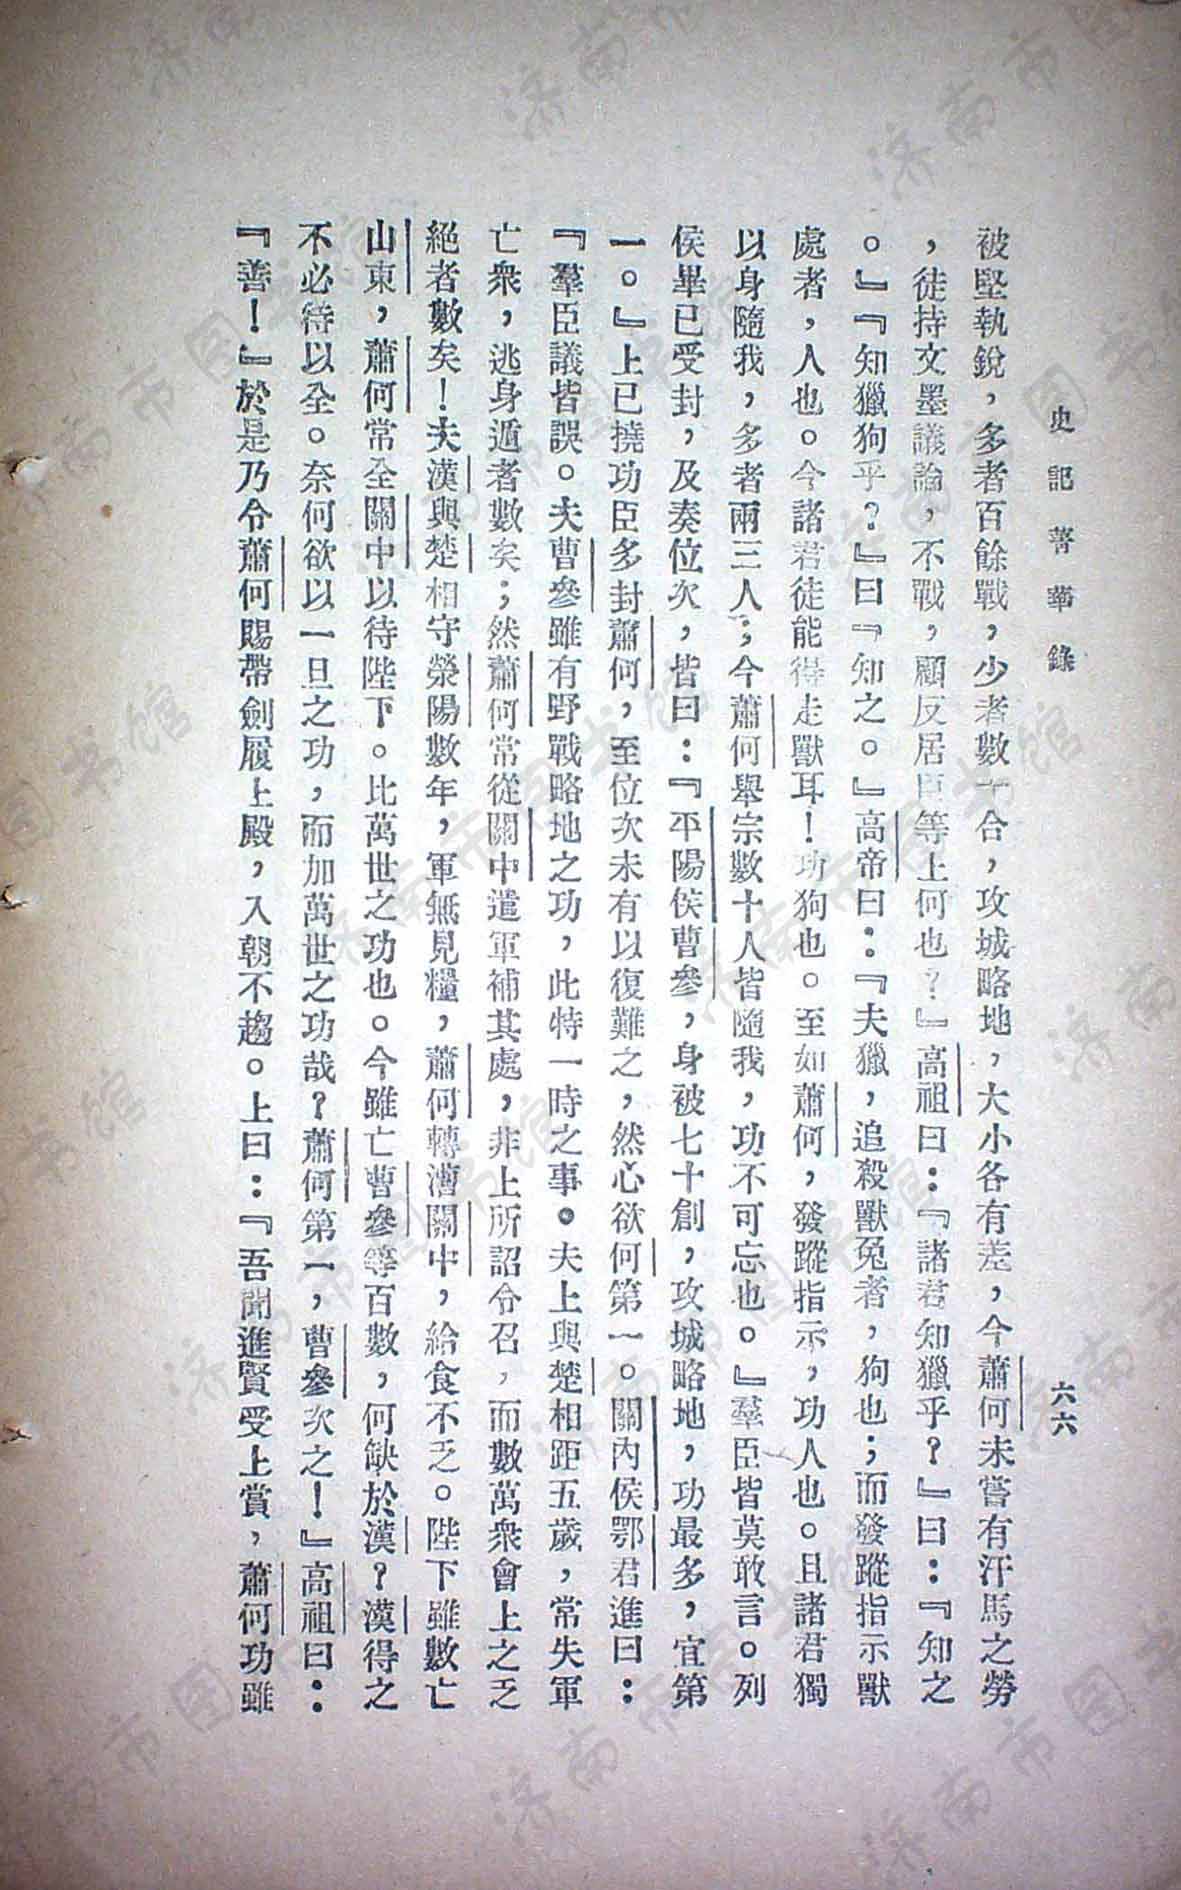 史記菁華錄
六六
被堅執銳，多者百餘戰，少者數十合，攻城略地，大小各有差，今蕭何未嘗有汗馬之勞
，徒持文墨議論，不戰，顧反居臣等上何也？』高祖曰：『諸君知獵乎？』曰：『知之
。』『知獵狗乎？』曰『知之。』高帝曰：『夫獵，追殺獸兔者，狗也；而發蹤指示獸
處者，人也。今諸君徒能得走獸耳！功狗也。至如蕭何，發蹤指示，功人也。且諸君獨
以身隨我，多者兩三人；今蕭何舉宗數十人皆隨我，功不可忘也。』羣臣皆莫敢言。列
侯畢已受封，及奏位次，皆曰：『平陽侯曹參，身被七十創，攻城略地，功最多，宜第
一。』上已撓功臣多封蕭何，至位次未有以復難之，然心欲何第一。關內侯鄂君進曰：
『羣臣議皆誤。夫曹參雖有野戰略地之功，此特一時之事。夫上與楚相距五歲，常失軍
亡衆，逃身遁者數矣；然蕭何常從關中遣軍補其處，非上所詔令召，而數萬衆會上之乏
絕者數矣！夫漢與楚相守滎陽數年，軍無見糧，蕭何轉漕關中，給食不乏。陛下雖數亡
山東，蕭何常全關中以待陛下。比萬世之功也。今雖亡曹參等百數，何缺於漢？漢得之
不必待以全。奈何欲以一旦之功，而加萬世之功哉？蕭何第一，曹參次之！』高祖曰：
『善！』於是乃令蕭何賜帶劍履上殿，入朝不趨。上曰：『吾聞進賢受上賞，蕭何功雖
济南市图书馆